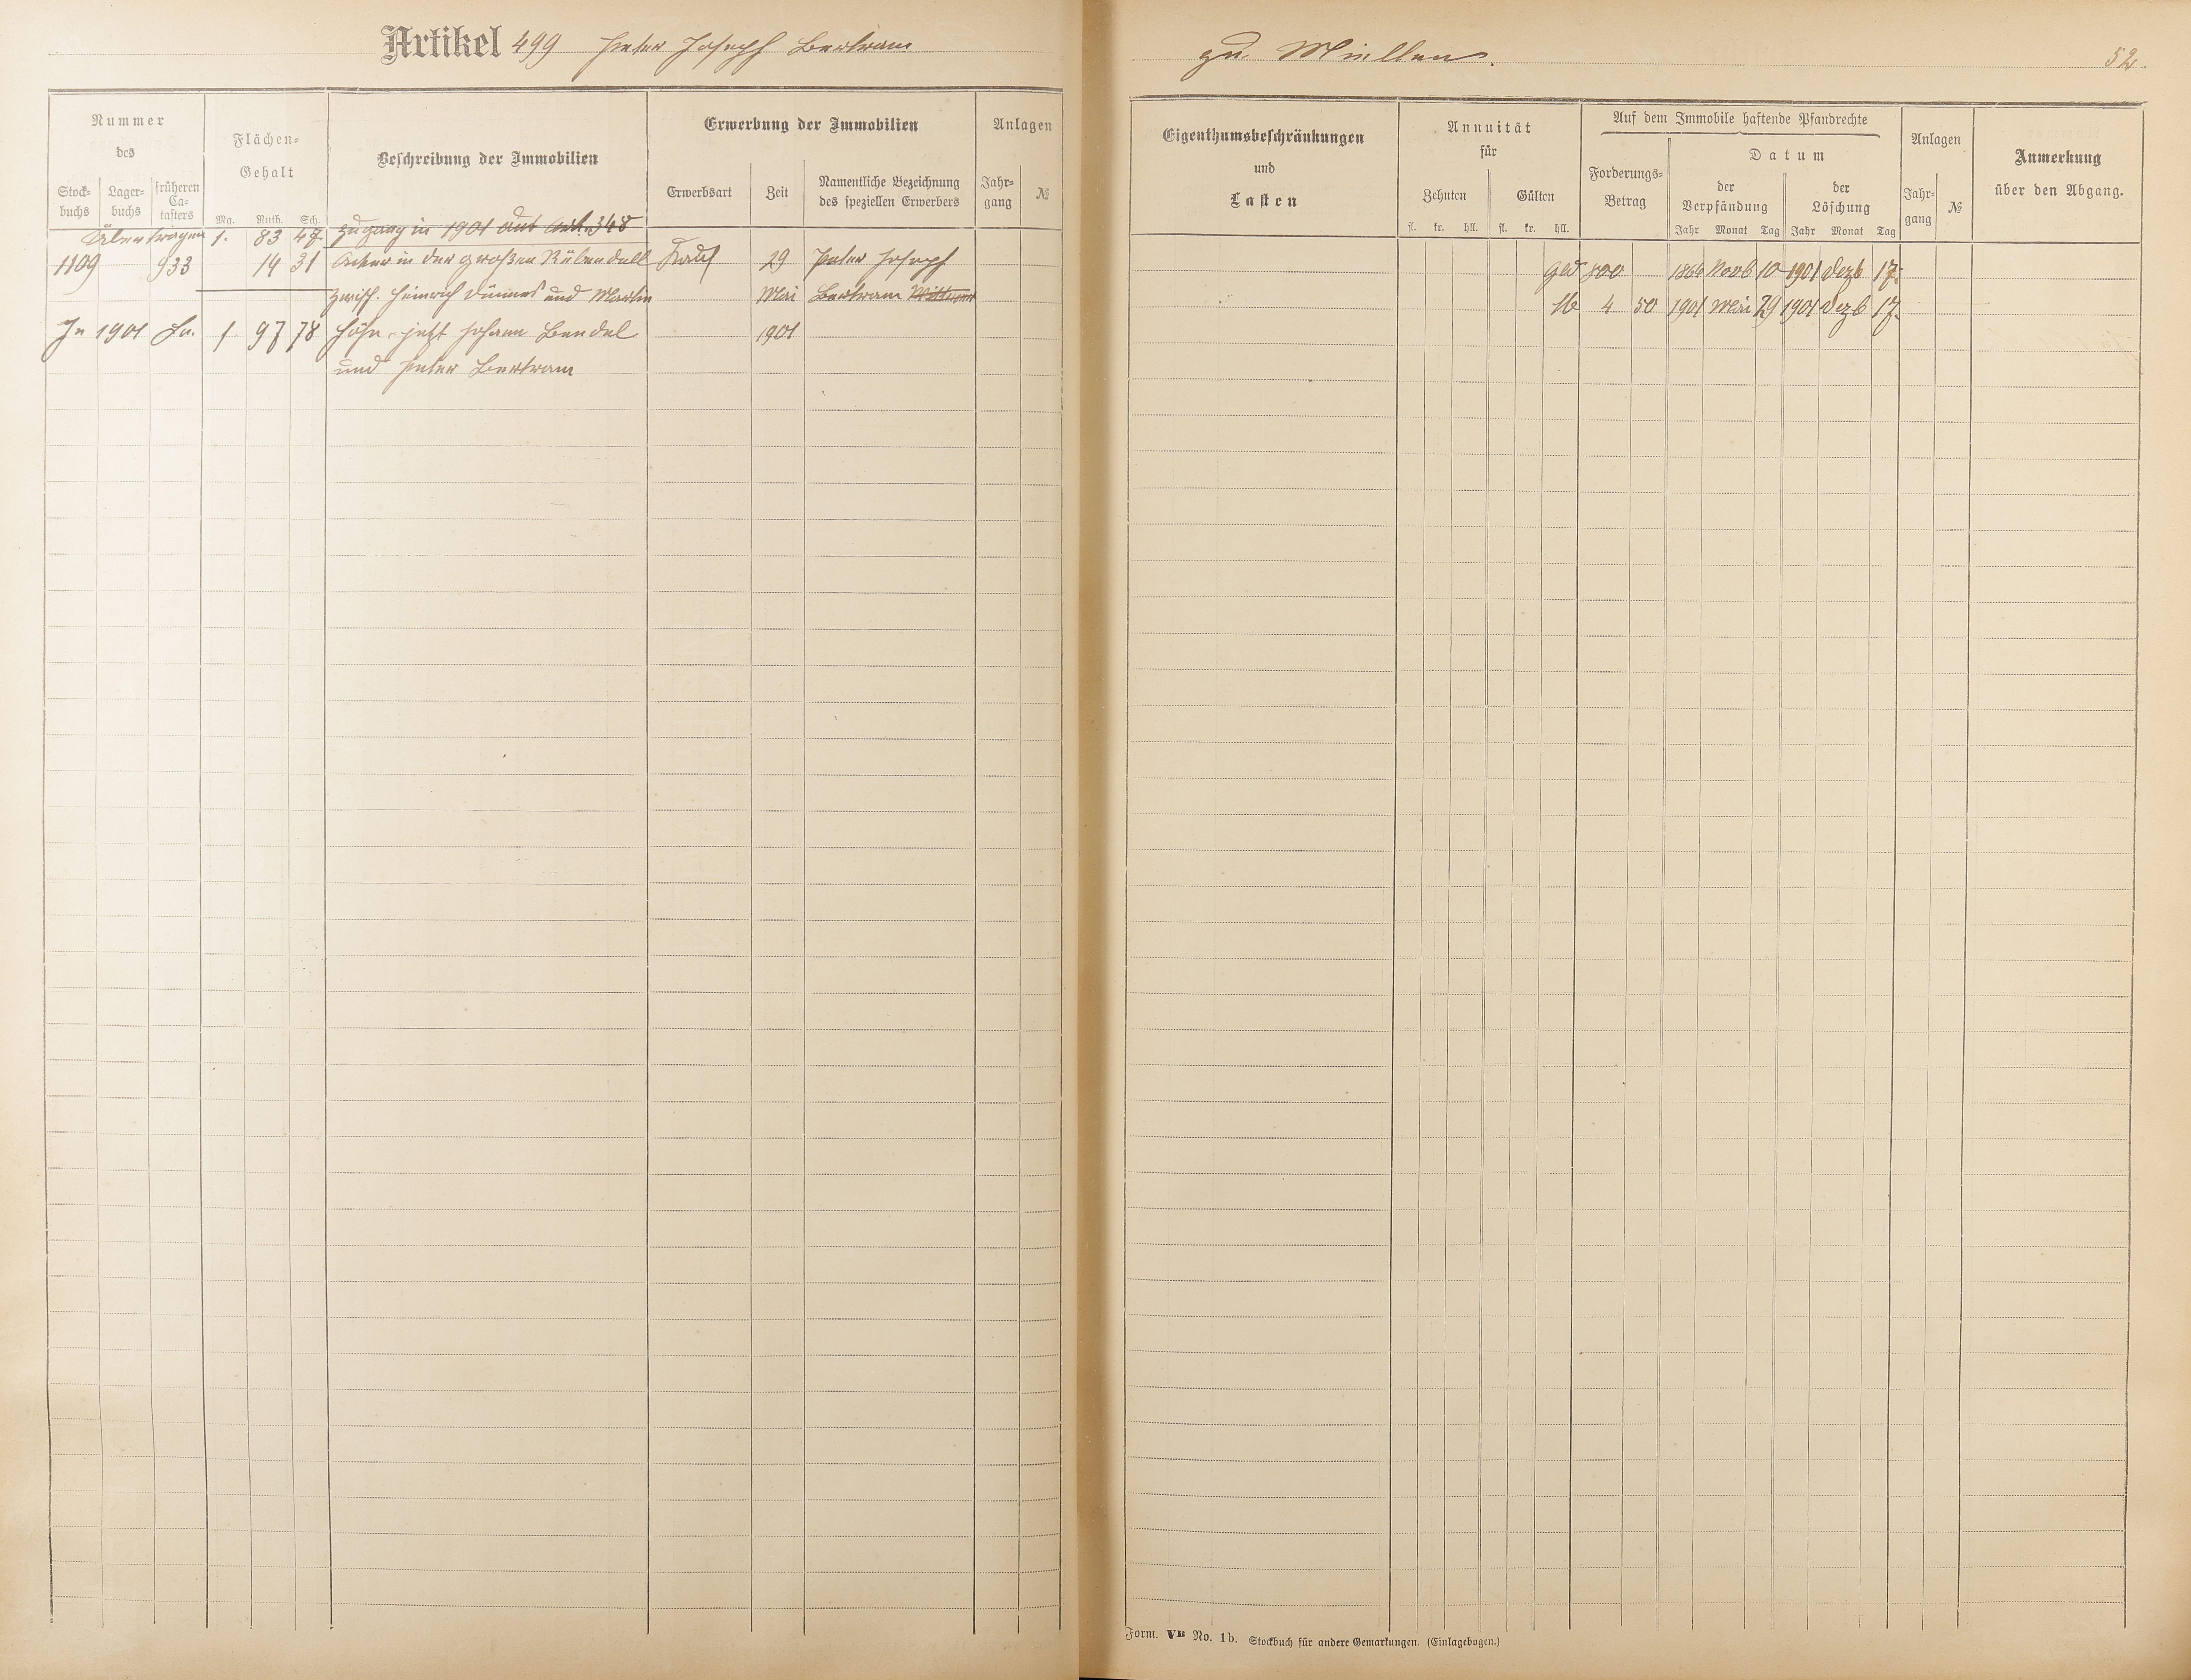 Artikel 499 Peter Joseph Bertram
Nummer
des
Stock-
buchs
Lager-
buchs
früheren
Ca-
tasters
Flächen-
Gehalt
Mg. Ruth. Sch.
Beschreibung der Immobilien
Erwerbung der Immobilien
Erwerbsart
Zeit
Namentliche Bezeichnung
des speziellen Erwerbers
Anlagen
Jahr-
gang
№
Übertragen 1. 83 47. Zugang in 1901 aus Art. 348
1109 933 14 31 Acker in der großen Rübendell Kauf 29 Peter Joseph
zwisch. Heinrich Dünnes und Martin Mai Bertram
In 1901 Sa. 1 97 78 Höhn, jetzt Johann Bendel 1901
und Peter Bertram
zu Miellen.
52.
Eigenthumsbeschränkungen
und
Lasten
Annuität
für
Zehnten
Gülten
fl. kr. hll. fl. kr. hll.
Auf dem Immobile haftende Pfandrechte
Forderungs-
Betrag
Datum
der
Verpfändung
der
Löschung
Jahr Monat Tag Jahr Monat Tag
Anlagen
Jahr-
gang
№
Anmerkung
über den Abgang.
800 1866 Novb 10 1901 Dezb 17.
4 50 1901 Mai 29 1901 Dezb 17.
Form. VB No. 1b. Stockbuch für andere Gemarkungen. (Einlagebogen.)